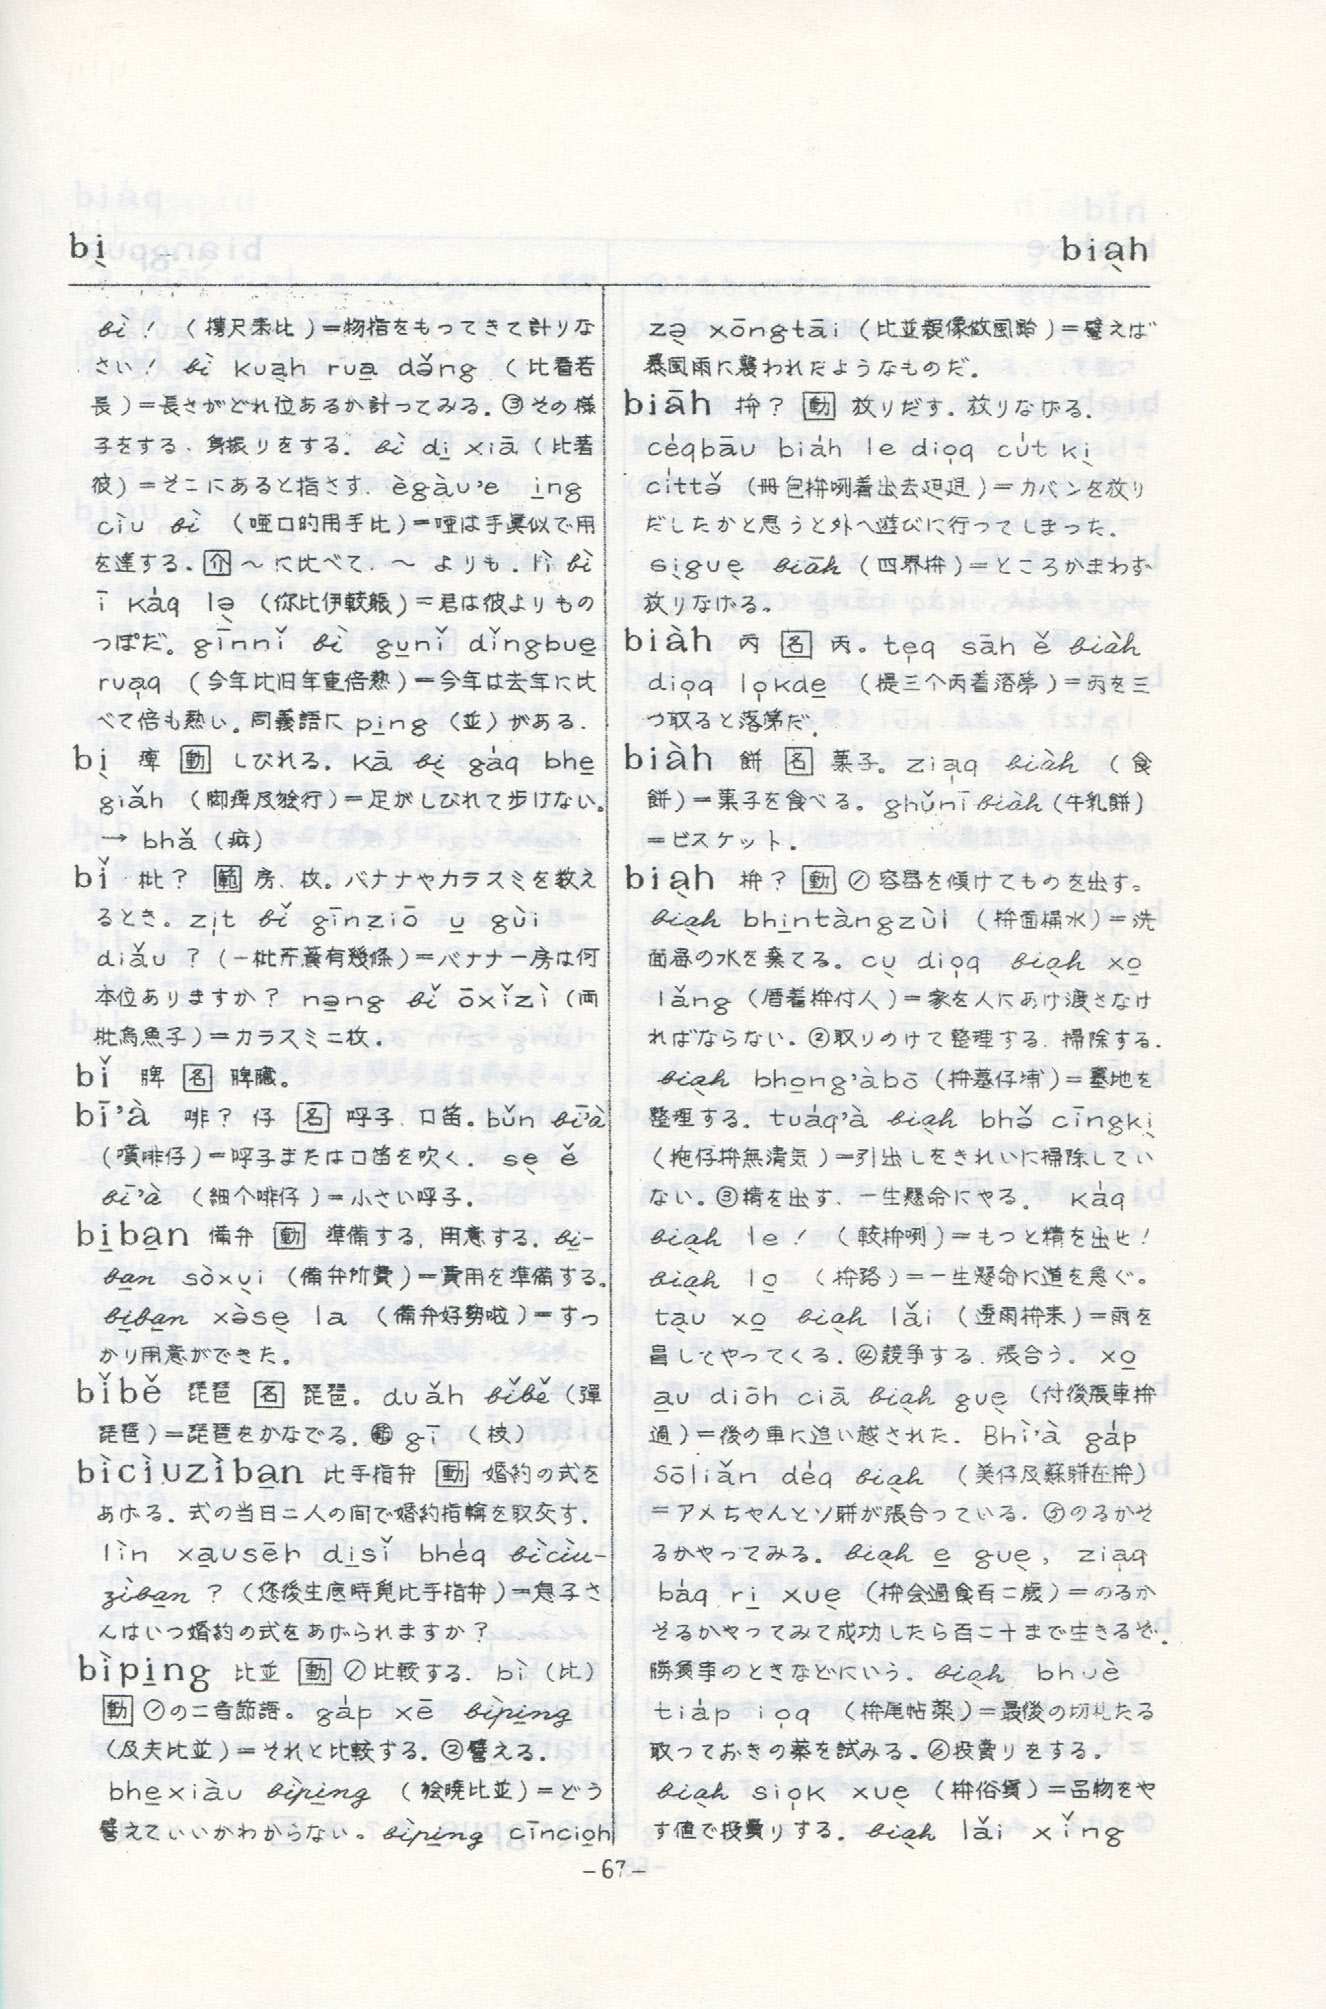 bì̱
bia̱̖h
bì! (攑尺來比)=物指をもってきて計りな
さい! bì kua̖h rua̱ də̌ng (比看若
長)=長さがどれ位あるか計ってみる.③その様
子をする.身振りをする. bì di̱ xiā (比著
彼)=そこにあると指さす. ègàu'e i̱ng
cìu bì (啞口的用手比)=啞は手眞似で用
を達する.介 〜に比べて.〜よりも. lì bì
ī káq lə̖ (你比伊較䠡)=君は彼よりもの
っぽだ。gīnnǐ bì gu̱nǐ dǐngbue̱
rua̍q (今年比旧年重倍熱)=今年は去年に比
べて倍も熱い。同義語に pi̱ng (並)がある.
bi̖ 痺 動 しびれる. Kā bi̖ gáq bhe̱
giǎh (脚痺及獪行)=足がしびれて歩けない。
→ bhǎ (痲)
bǐ 枇? 範 房、枚。バナナやカラスミを数え
るとき. zi̍t bǐ gīnziō u̱ gùi
diǎu ? (一枇芎蕉有幾條)=バナナ一房は何
本位ありますか? nə̱ng bǐ ōxǐzì (両
枇烏魚子)=カラスミ二枚.
bǐ 脾 名 脾臓。
bī'à 啡? 仔 名 呼子.口笛。bǔn bī'à
(噴啡仔)=呼子または口笛を吹く. se̖ ě
bī'à (細个啡仔)=小さい呼子.
bi̱ba̱n 備弁 動 準備する,用意する. bi̱-
ba̱n sòxui̖ (備弁所費)=費用を準備する。
bi̱ba̱n xə̀se̖ la (備弁好勢啦)=すっ
かり用意ができた。
bǐbě 琵琶 名 琵琶。duǎh bǐbě (彈
琵琶)=琵琶をかなでる. gī (枝)
bìcìuzìba̱n 比手指弁 動 婚約の式を
あげる. 式の当日二人の間で婚約指輪を取交す.
lìn xa̱usēh di̱sǐ bhéq bìcìu-
zìba̱n ? (您後生底時覓比手指弁)=息子さ
んはいつ婚約の式をあげられますか?
bìpi̱ng 比並 動 ①比較する. bì (比)
動 ①の二音節語。gáp xē bìpi̱ng
(及夫比並)=それと比較する.②譬える.
bhe̱xiàu bìpi̱ng (獪曉比並)=どう
譬えていいかわからない。bìpi̱ng cīncio̱h
zə̖ xōngtāi (比並親像做風颱)=譬えば
暴風雨に襲われたようなものだ。
biāh 拚? 動 放りだす.放りなげる.
céqbāu biāh le dio̍q cút ki̖
cíttǒ (冊包拚咧着出去𨑨迌)=カバンを放り
だしたかと思うと外へ遊びに行ってしまった.
si̖gue̖ biāh (四界拚)=ところかまわず
放りなげる。
biàh 丙 名 丙. te̍q sāh ě biàh
dio̍q lo̍kde̱ (提三个丙着落第)=丙を三
つ取ると落第だ.
biàh 餅 名 菓子。zia̍q biàh (食
餅)=菓子を食べる。ghǔnī biàh (牛乳餅)
=ビスケット.
bia̖h 拚? 動 ①容器を傾けてものを出す。
bia̖h bhi̱ntàngzùi (拚面桶水)=洗
面器の水を棄てる. cu̖ dio̍q bia̖h xo̱
lǎng (厝着拚付人)=家を人にあけ渡さなけ
ればならない.②取りのけて整理する.掃除する.
bia̖h bho̱ng'àbō (拚墓仔埔)=墓地を
整理する. tuáq'à bia̖h bhǒ cīngki̖
(拖仔拚無清気)=引出しをきれいに掃除してい
ない.③精を出す.一生懸命にやる. Káq
bia̖h le! (較拚咧)=もっと精を出せ!
bia̖h lo̱ (拚路)=一生懸命に道を急ぐ。
ta̖u xo̱ bia̖h lǎi (透雨拚来)=雨を
冒してやってくる.④競争する.張合う. xo̱
a̱u diōh ciā bia̖h gue̖ (付後張車拚
過)=後の車に追い越された. Bhì'à gáp
Sōliǎn déq bia̖h (美仔及蘇聯在拚)
=アメちゃんとソ聯が張合っている.⑤のるかそ
るかやってみる。bia̖h e̱ gue̖, zia̍q
báq ri̱ xue̖ (拚会過食百二歳)=のるか
そるかやってみて成功したら百二十まで生きるぞ.
勝負事のときなどにいう。bia̖h bhuè
tiáp io̍q (拚尾帖薬)=最後の切札たる
取っておきの薬を試みる。⑥投賣りをする.
bia̖h sio̍k xue̖ (拚俗貨)=品物をや
す値で投賣りする. bia̖h lǎi xǐng
-67-